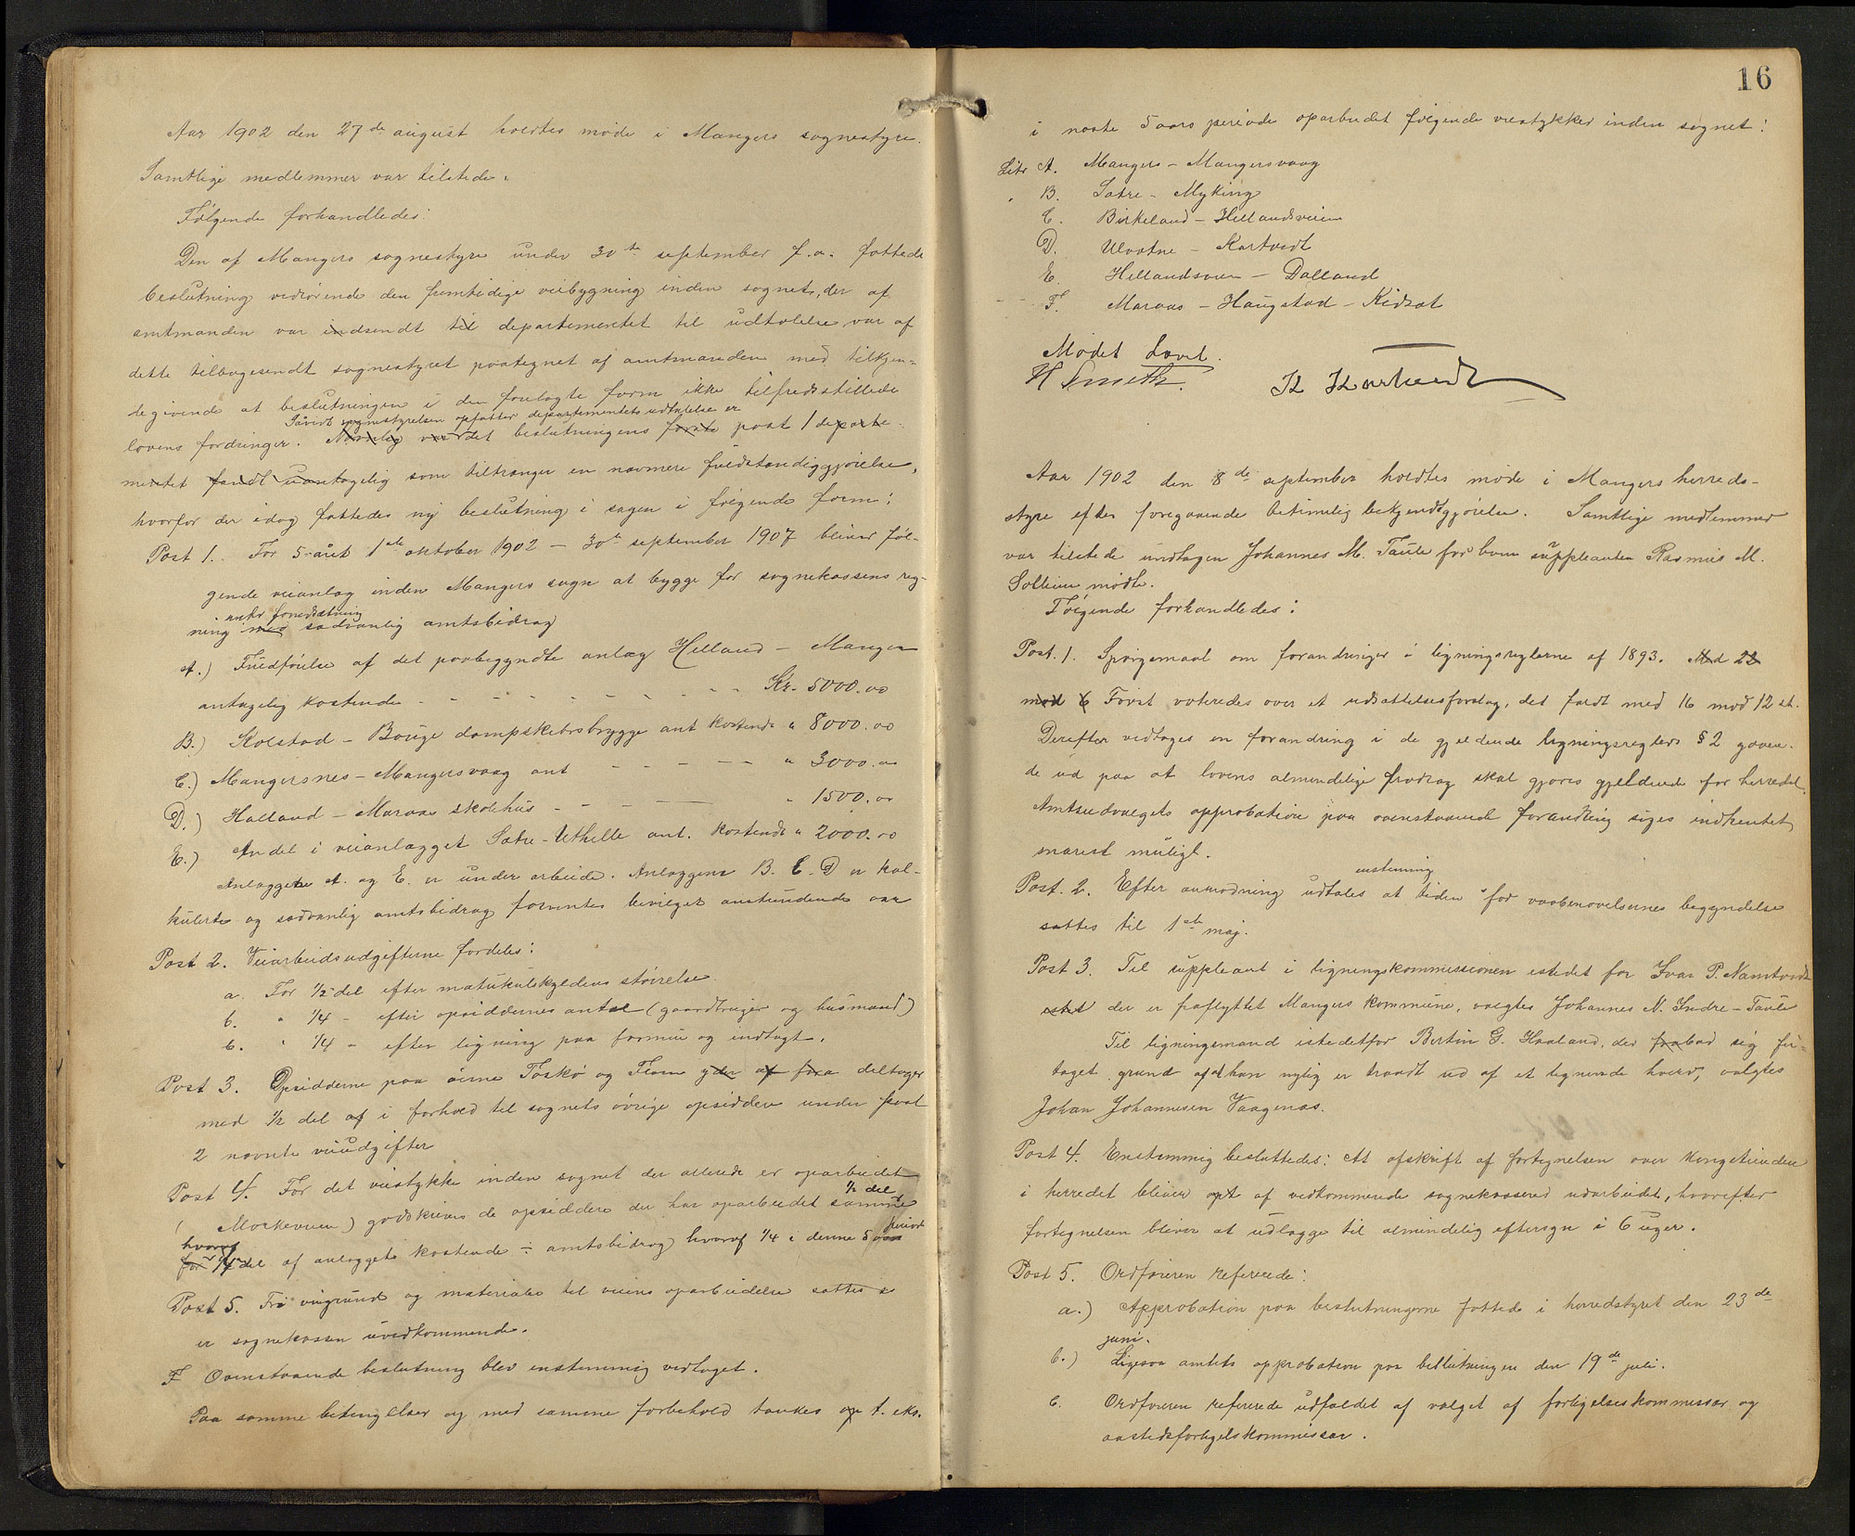 Aar 1902 den 27de august holdtes møde i Mangers sognestyre.
Samtlige medlemmer var tilstede.
Følgende forhandledes:
Den af Mangers sognestyre under 30te september f.a. fattede
beslutning vedrørende den fremtidige veibygning inden sognet, der af
amtmanden var indsendt til departementet til udtalelse, var af
dette tilbagesendt sognestyret paategnet af amtmanden med tilkjen-
degivende at beslutningen i den forelagte form ikke tilfredsstillede
Såvidt sognestyrelsen opfatter departementets udtalelse er
lovens fordringer. Nemlig var det beslutningens første post 1 departe-
mentet fandt uantagelig som tiltrænger en nærmere fuldstændiggjørelse,
hvorfor der idag fattedes ny beslutning i sagen i følgende form:
Post 1. For 5-året 1ste oktober 1902 – 30te september 1907 bliver føl-
gende veianlæg inden Mangers sogn at bygge for sognekassens reg-
under forudsætning
ning med sædvanlig amtsbidrag
A.) Fuldførelse af det paabegyndte anlæg Helland – Manger
antagelig kostende - - - - - - - - Kr. 5000.00
B.) Kolstad – Bøuge dampskibsbrygge ant kostende " 8000.00
C.) Mangersnes – Mangersvaag ant - - - - - " 3000.00
D.) Halland – Maraas skolehus - - - - " 1500.00
E.) Andel i veianlægget Sætre – Uthelle ant. kostende " 2000.00
Anlæggene A. og E. er under arbeide. Anlæggene B. C. D er kal-
kulerte og sædvanlig amtsbidrag forventes bevilget anstundende aar
Post 2. Veiarbeidsudgifterne fordeles:
a. For 1/2 del efter matrikulskyldens størrelse
b. " 1/4 - efter opsiddernes antal (gaardbruger og husmænd)
c. " 1/4 - efter ligning paa formue og indtægt.
Post 3. Opsidderne paa øerne Toskø og Flone yder af fra deltager
med 1/2 del af i forhold til sognets øvrige opsiddere under post
2 nævnte veiudgifter
Post 4. For det veistykke inden sognet der allerede er oparbeidet
1/2 del
( Morkeveien ) godskrives de opsiddere der har oparbeidet samme
hvoraf periode
for 1/4 del af anlæggets kostende ÷ amtsbidrag hvoraf 1/4 i denne 5 aars
Post 5. Fri veigrund og materialer til veiens oparbeidelse sættes
er sognekassen uvedkommende.
F Ovenstaaende beslutning blev enstemmig vedtaget.
Paa samme betingelser og med samme forbehold tænkes og t. eks.
16
i næste 5 aars periode oparbeidet følgende veistykker inden sognet:
Litr A. Mangers – Mangersvaag
" B. Sætre – Myking
C. Birkeland – Hellandsveien
D. Ulvatne – Kartvedt
E. Hellandsveien – Dalland
F. Maraas – Haugstad – Kidsæt
Mødet hævet.
H Smith. K Kartveidt
Aar 1902 den 8de september holdtes møde i Mangers herreds-
styre efter foregaaende betimelig bekjendtgjørelse. Samtlige medlemmer
var tilstede undtagen Johannes M. Taule for ham suppleanten Rasmus M.
Solheim mødte.
Følgende forhandledes:
Post. 1. Spørgsmaal om forandringer i ligningsreglerne af 1893. Med 22
mod 6 Først voteredes over et udsættelsesforslag, det faldt med 16 mod 12 st.
Derefter vedtages en forandring i de gjeldende ligningsregler § 2 gaaen-
de ud paa at lovens almindelige fradrag skal gjøres gjeldende for herredet.
Amtsudvalgets approbation paa ovenstaaende forandring siges indhentet
snarest muligt.
enstemmig
Post. 2. Efter anmodning udtales at tiden for vaabenøvelsernes begyndelse
sættes til 1ste maj.
Post 3. Til suppleant i ligningskommissionen istedet for Ivar P. Namtvedt
sted der er fraflyttet Mangers kommune, valgtes Johannes N. Indre – Taule
Til ligningsmand istedetfor Bertin G. Haaland, der frabad sig fri-
taget grund af at han nylig er traadt ud af et lignende hverv, valgtes
Johan Johannesen Vaagenæs.
Post 4. Enstemmig besluttedes: At afskrift af fortegnelsen over kongetienden
i herredet bliver opt af vedkommende sognekasserer udarbeidet, hvorefter
fortegnelsen bliver at udlægge til almindelig eftersyn i 6 uger.
Post 5. Ordføreren refererede:
a.) Approbation paa beslutningerne fattede i herredstyret den 23de
juni.
b.) Ligesaa amtets approbation paa beslutningen den 19de juli.
c. Ordføreren refererede udfaldet af valget af forligelseskommissær og
aastedsforligelskommissær.